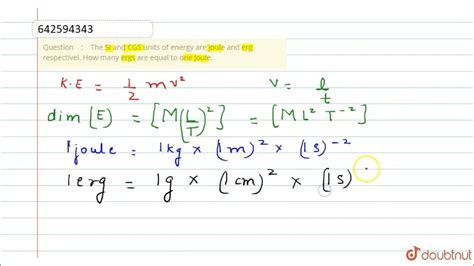 642594343
Question : The SI and CGS units of energy are joule and erg
respectivel. How many ergs are equal to one Joule.
K.E = 1/2 m v² V = l/t
dim [E] = [M(L/T)²] = [M L² T⁻²]
1 joule = 1 kg × (1 m)² × (1 s)⁻²
1 erg = 1 g × (1 cm)² × (1 s)
doubtnut